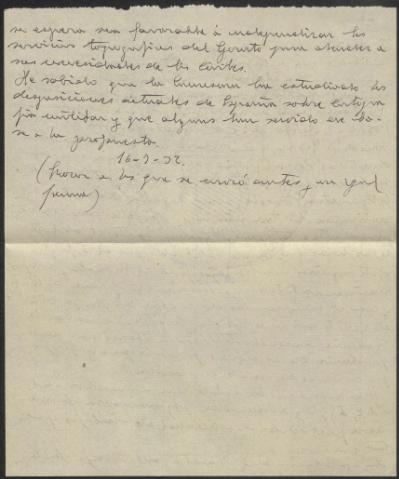 se espera sea favorable á independizar los
servicios topograficos del Govierto para atender a
sus necesidades de los civiles.
He sabido que la Comision ha estudiado las
disposiciones actuales de España sobre Cartogra
fia militar y que algunas han servido de ba-
se a la propuesta.
16-3-32.
( a las que se envió antes, en igual
forma)